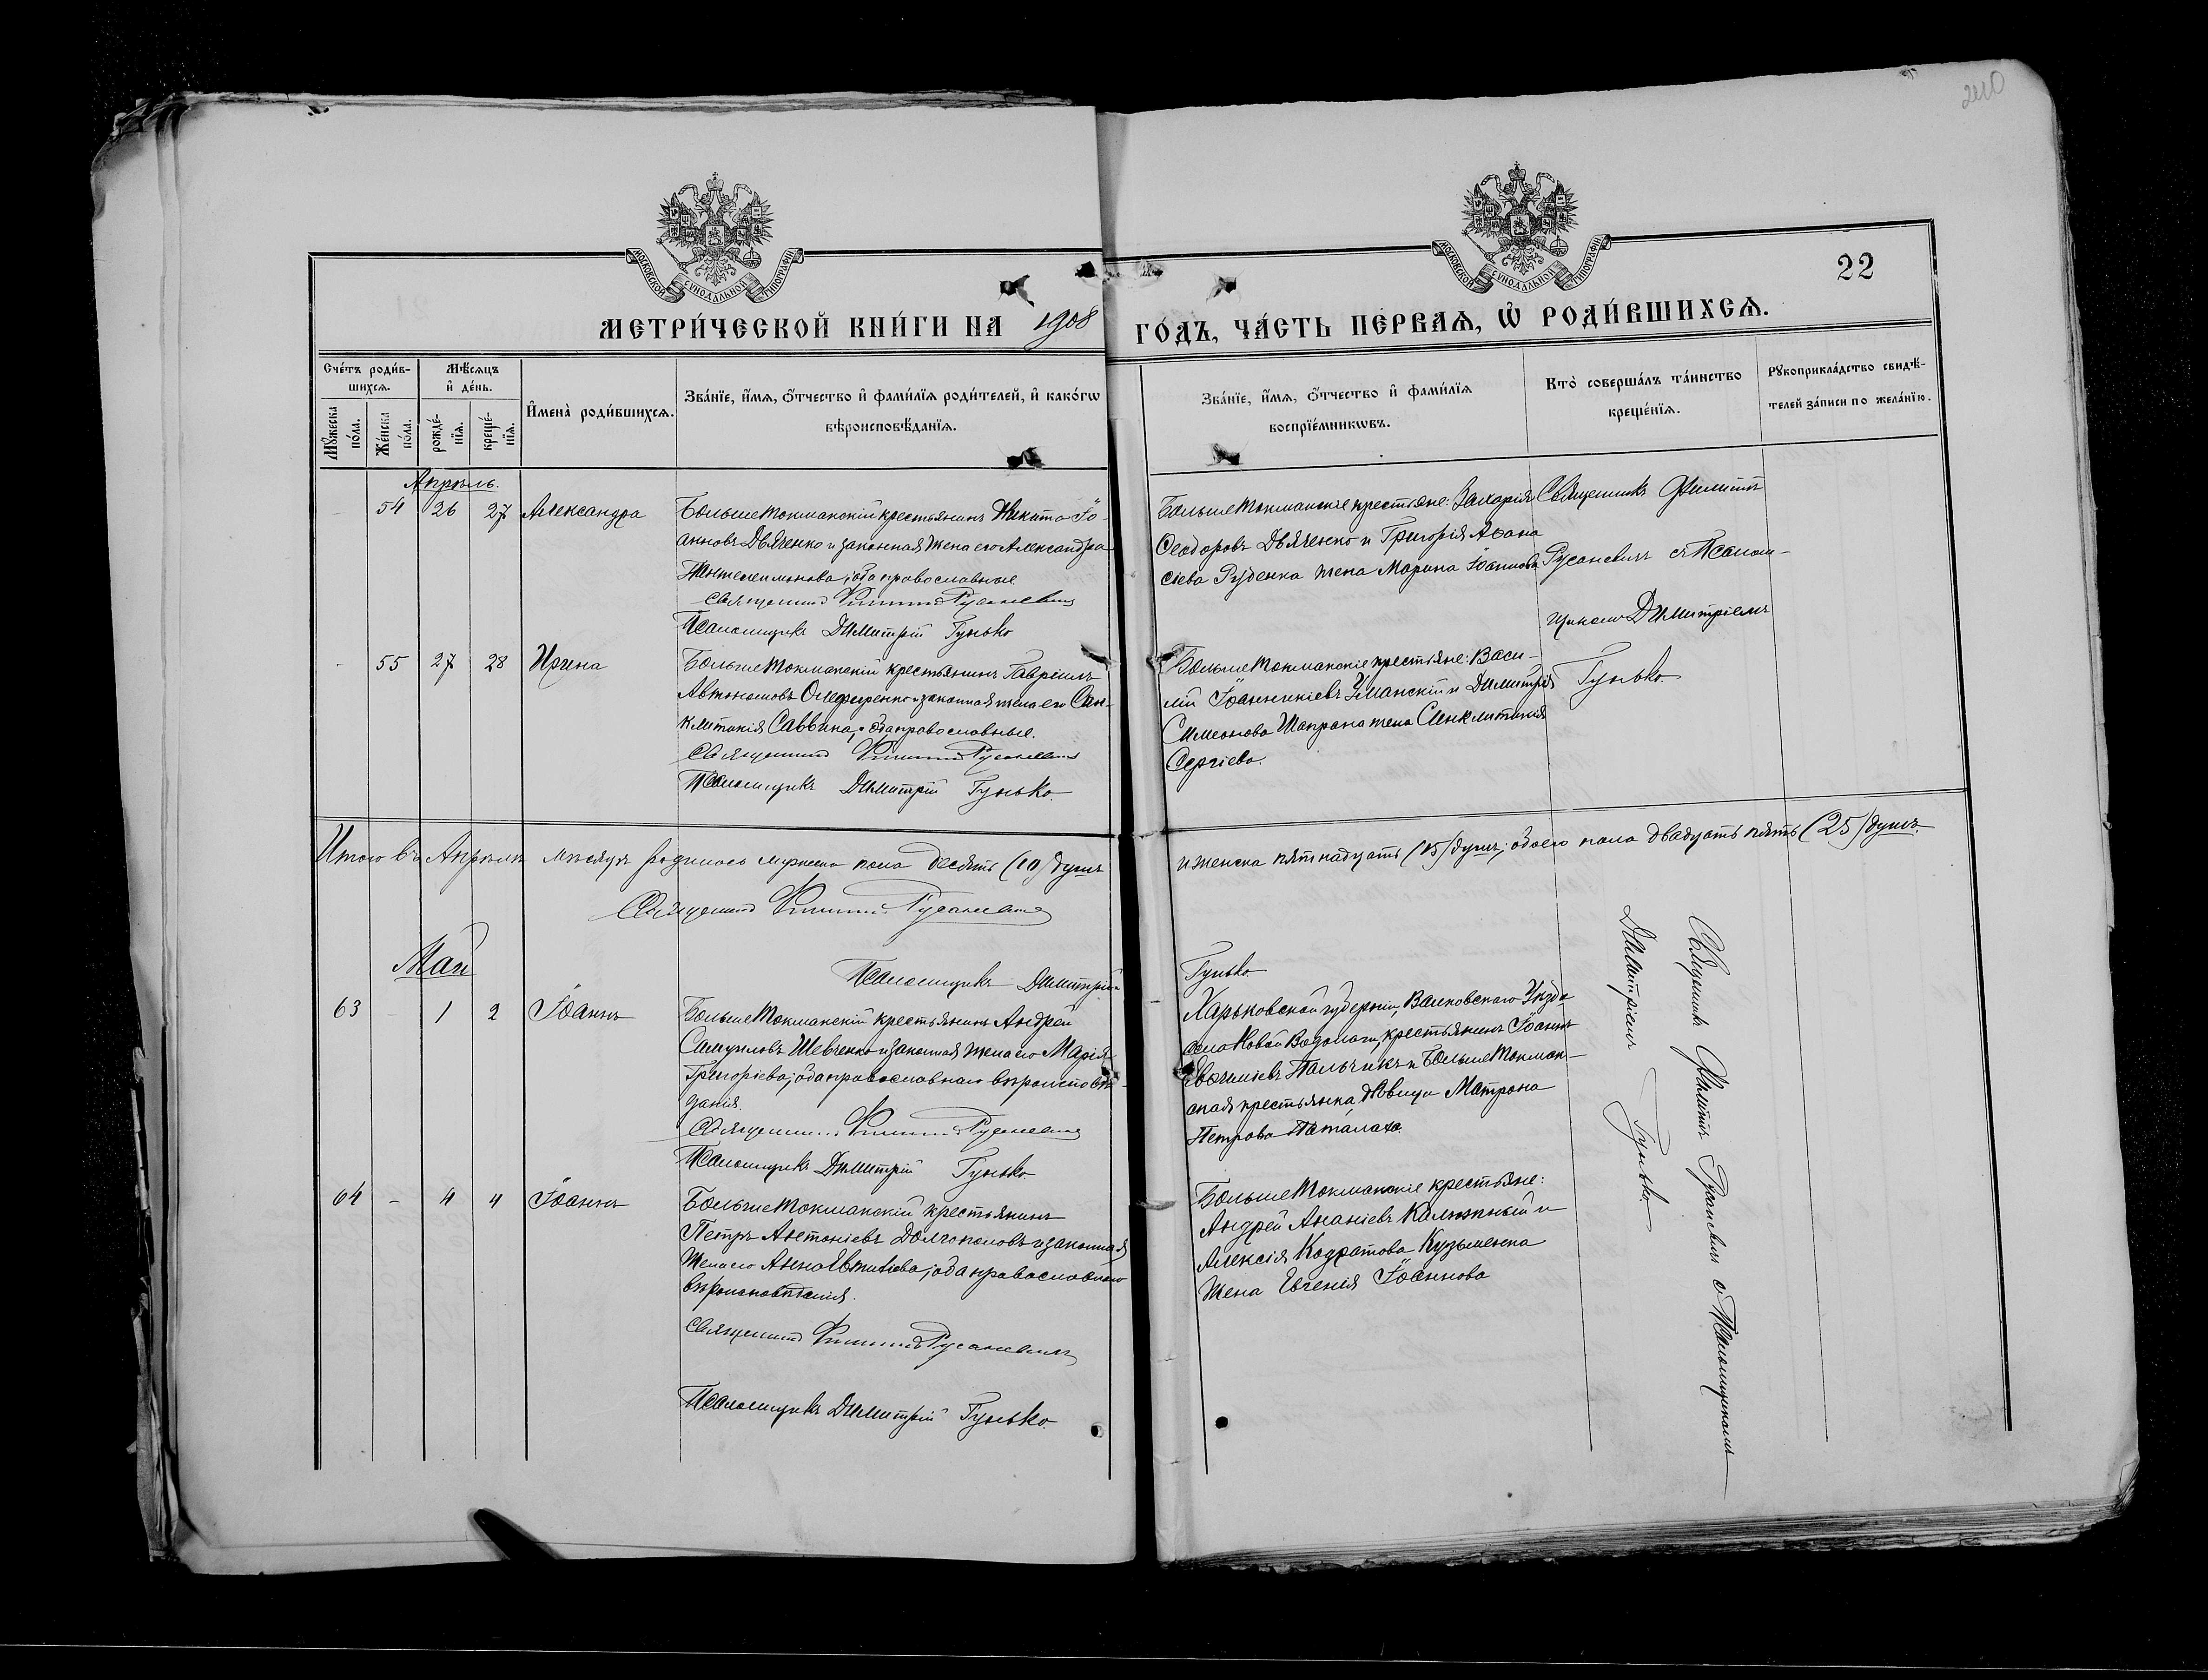 240
22
МОСКОВСКОЙ СУНОДАЛЬНОЙ ТИПОГРАФІИ
МОСКОВСКОЙ СУНОДАЛЬНОЙ ТИПОГРАФІИ
МЕТРИ́ЧЕСКОЙ КНИ́ГИ НА 1908 ГО́ДЪ, ЧА́СТЬ ПЕ́РВАѦ, Ѡ҆ РОДИ́ВШИХСѦ.
Сче́тъ роди́в-
шихсѧ.
Мѣ́сѧцъ
и҆ де́нь.
Мꙋ́жеска по́ла.
Же́нска по́ла.
рожде́-
нїѧ.
креще́-
нїѧ.
И҆мена̀ роди́вшихсѧ.
Зва́нїе, и҆́мѧ, ѻ҆́тчество и҆ фами́лїѧ роди́телей, и҆ како́гѡ
вѣроисповѣ́данїѧ.
Зва́нїе, и҆́мѧ, ѻ҆́тчество и҆ фами́лїѧ
воспрїе́мникѡвъ.
Кто̀ соверша́лъ та́инство
креще́нїѧ.
Рꙋкоприкла́дство свидѣ́-
телей за́писи по жела́нїю.
Апрѣль.
54 26 27 Александра
Больше Токмакскій крестьянинъ Никита Іо-
анновъ Дьяченко и законная жена его Александра
Пантелеимонова; оба православные
Священникъ Филиппъ Русаневичъ
Псаломщикъ Димитрій Гунько
Больше Токмакскіе крестьяне: Захарія
Ѳеодоровъ Дьяченко и Григорія Аѳана
сіева Руденка жена Марина Іоаннова
Священникъ Филиппъ
Русаневичъ съ Псалом-
щикомъ Димитріемъ
Гунько
- 55 27 28 Ирина
Больше Токмакскій крестьянинъ Гавріилъ
Автономовъ Олеференко и законная жена его Син-
клитикія Саввина, оба православные.
Священникъ Филиппъ Русаневичъ
Псаломщикъ Димитрій Гунько
Больше Токмакскіе крестьяне: Васи-
лій Іоанникіевъ Уманскій и Димитрія
Симеонова Шапрана жена Синклитикія
Сергіева.
Итого въ Апрѣлѣ мѣсяцѣ родилось мужеска пола десять (10) душъ
и женска пятнадцать (15) душъ; обоего пола двадцать пять (25) душъ.
Священникъ Филиппъ Русаневичъ
Псаломщикъ Димитрій Гунько
Май
63 - 1 2 Іоаннъ
Больше Токмакскій крестьянинъ Андрей
Самуиловъ Шевченко и законная жена его Марія
Григоріева; оба православнаго вѣроисповѣ-
данія.
Священникъ Филиппъ Русаневичъ
Псаломщикъ Димитрій Гунько
Харьковской губерніи, Валковскаго Уѣзда
села Новой Водолаги, крестьянинъ Іоаннъ
Евѳиміевъ Пальчикъ и Больше Токмак-
ская крестьянка, дѣвица Матрона
Петрова Паталаха.
64 - 4 4 Іоаннъ
Больше Токмакскій крестьянинъ
Петръ Антоніевъ Долгополовъ и законная
жена его Анна; оба православнаго
вѣроисповѣданія.
Священникъ Филиппъ Русаневичъ
Псаломщикъ Димитрій Гунько
Больше Токмакскіе крестьяне:
Андрей Ананіевъ Калюжный и
Алексія Кодратова Кузьменка
жена Евгенія Іоаннова
Священникъ Филиппъ Русаневичъ съ Псаломщикомъ
Димитріемъ Гунько